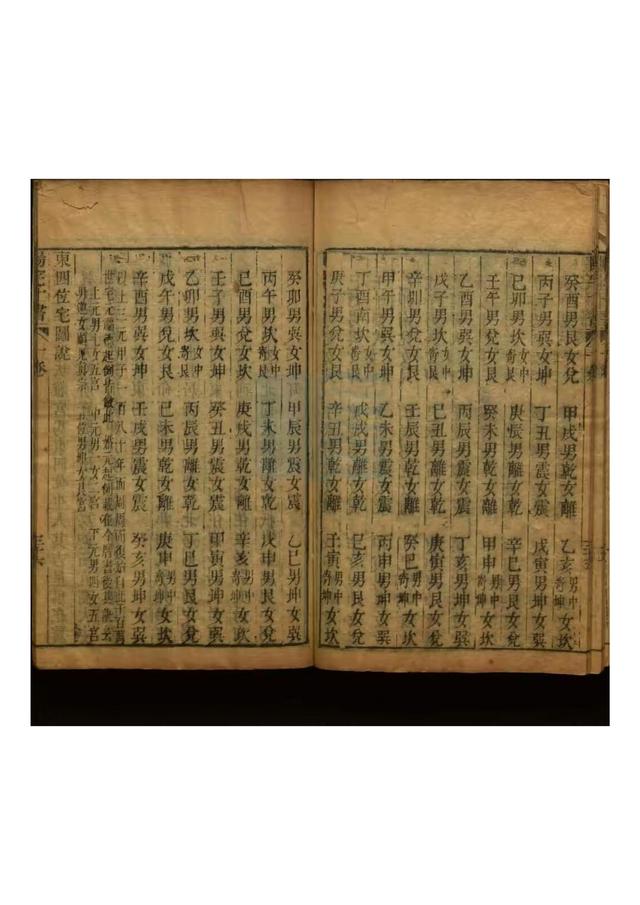 癸酉男艮女兌 甲戌男乾女離 乙亥男中寄坤女坎
丙子男巽女坤 丁丑男震女震 戊寅男坤女巽
己卯男坎女中寄艮 庚辰男離女乾 辛巳男艮女兌
壬午男兌女艮 癸未男乾女離 甲申男中寄坤女坎
乙酉男巽女坤 丙辰男震女震 丁亥男坤女巽
戊子男坎女中寄艮 己丑男離女乾 庚寅男艮女兌
辛卯男兌女艮 壬辰男乾女離 癸巳男中寄坤女坎
甲午男巽女坤 乙未男震女震 丙申男坤女巽
丁酉男坎女中寄艮 戊戌男離女乾 己亥男艮女兌
庚子男兌女艮 辛丑男乾女離 壬寅男中寄坤女坎
癸卯男巽女坤 甲辰男震女震 乙巳男坤女巽
丙午男坎女中寄艮 丁未男離女乾 戊申男艮女兌
己酉男兌女艮 庚戌男乾女離 辛亥男中寄坤女坎
壬子男巽女坤 癸丑男震女震 甲寅男坤女巽
乙卯男坎女中寄艮 丙辰男離女乾 丁巳男艮女兌
戊午男兌女艮 己未男乾女離 庚申男中寄坤女坎
辛酉男巽女坤 壬戌男震女震 癸亥男坤女巽
以上三元甲子一百八十年而周周而復始自此千百萬
上元男七女五宮 中元男一女二宮 下元男四女五宮
東四位宅圖說
陽宅十書 一卷 三六